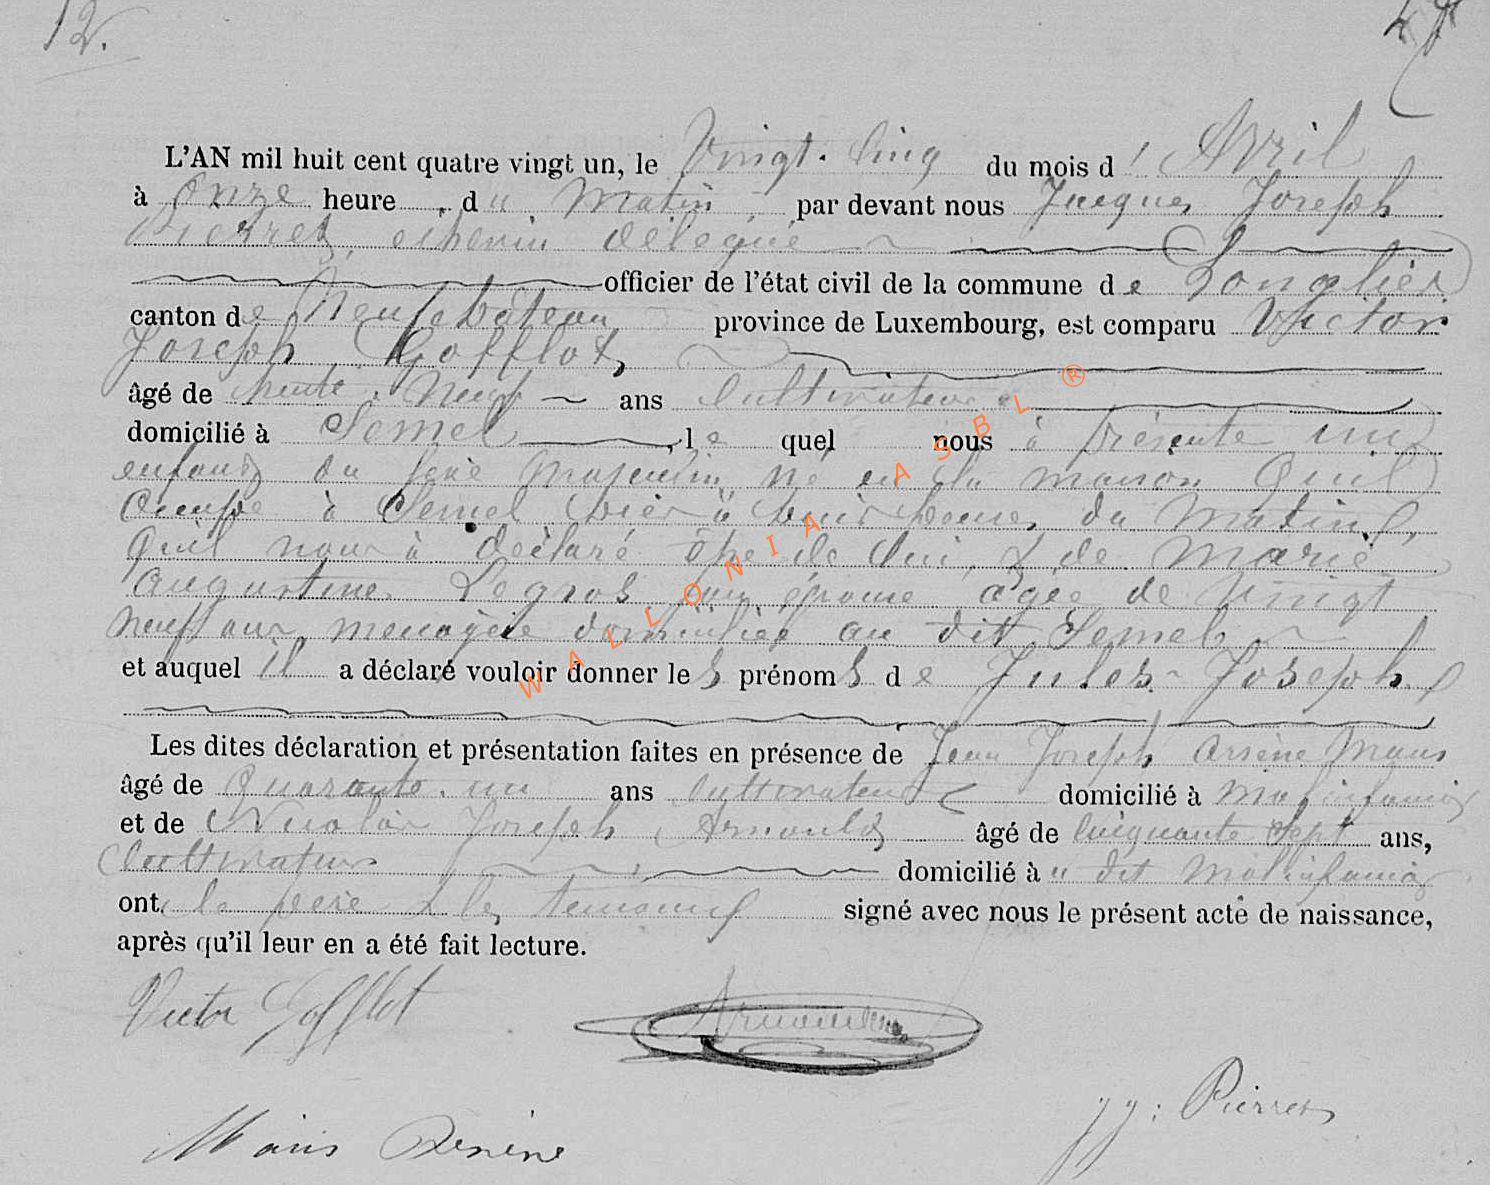 12.
L'AN mil huit cent quatre vingt un, le Vingt-Cinq du mois d'Avril
à onze heure, du Matin par devant nous Jacques Joseph
Pierret, echevin délégué
officier de l'état civil de la commune de Longlier
canton de Neufchâteau province de Luxembourg, est comparu Victor
Joseph Gofflot,
âgé de trente-Neuf ans Cultivateur
domicilié à Semel, le quel nous à présenté un
enfant du sexe Masculin né en la maison quil
occupe à Semel hier à huit heures du Matin,
quil nous à déclaré être de lui, & de Marie
Augustine Legros son épouse agée de Vingt
Neuf ans, menagère domiciliée au dit Semel
et auquel il a déclaré vouloir donner les prénoms de Jules-Joseph
Les dites déclaration et présentation faites en présence de Jean Joseph Arsène Maus
âgé de Quarante-un ans cultivateur domicilié à Massinfaing
et de Nicolas Joseph Arnould âgé de Cinquante Sept ans,
Cultivateur domicilié à u dit
ont le père & les temoins signé avec nous le présent acte de naissance,
après qu'il leur en a été fait lecture.
Victor Gofflot
JJ: Pierret
WALLONIA ASBL ®